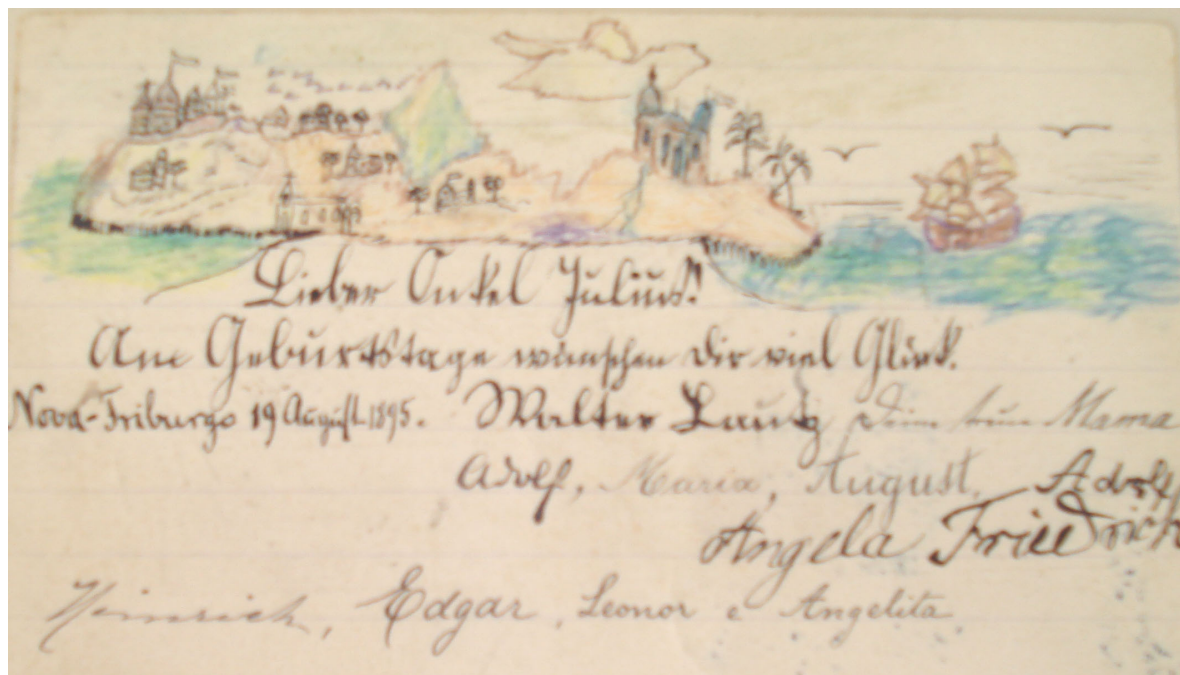 Lieber Onkel Julius!
Am Geburtstage wünschen dir viel Glück.
Nova-Friburgo 19 August 1895. Walter Lautz Deine treue Mama
Adolf, Maria, August, Adolf
Angela Friedrich
Heinrich, Edgar, Leonor e Angelita